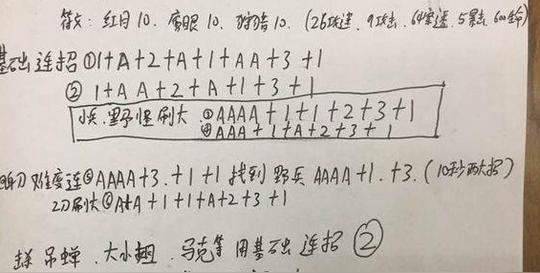 铭文: 红月10. 鹰眼10. 狩猎10. (26攻速. 9攻击. 64穿透. 5暴击. 600生命)
基础连招 ①1+A+2+A+1+AA+3+1
② 1+AA+2+A+1+3+1
小兵.野怪刷大. ③AAAA+1+1+2+3+1
④AAA+1+A+2+3+1
难度连⑤AAAA+3.+1+1 找到野兵 AAAA+1.+3.(10秒两大招)
刷大⑥A+A+1+1+A+2+3+1
吊蝉.大小 .马克等用基础连招②